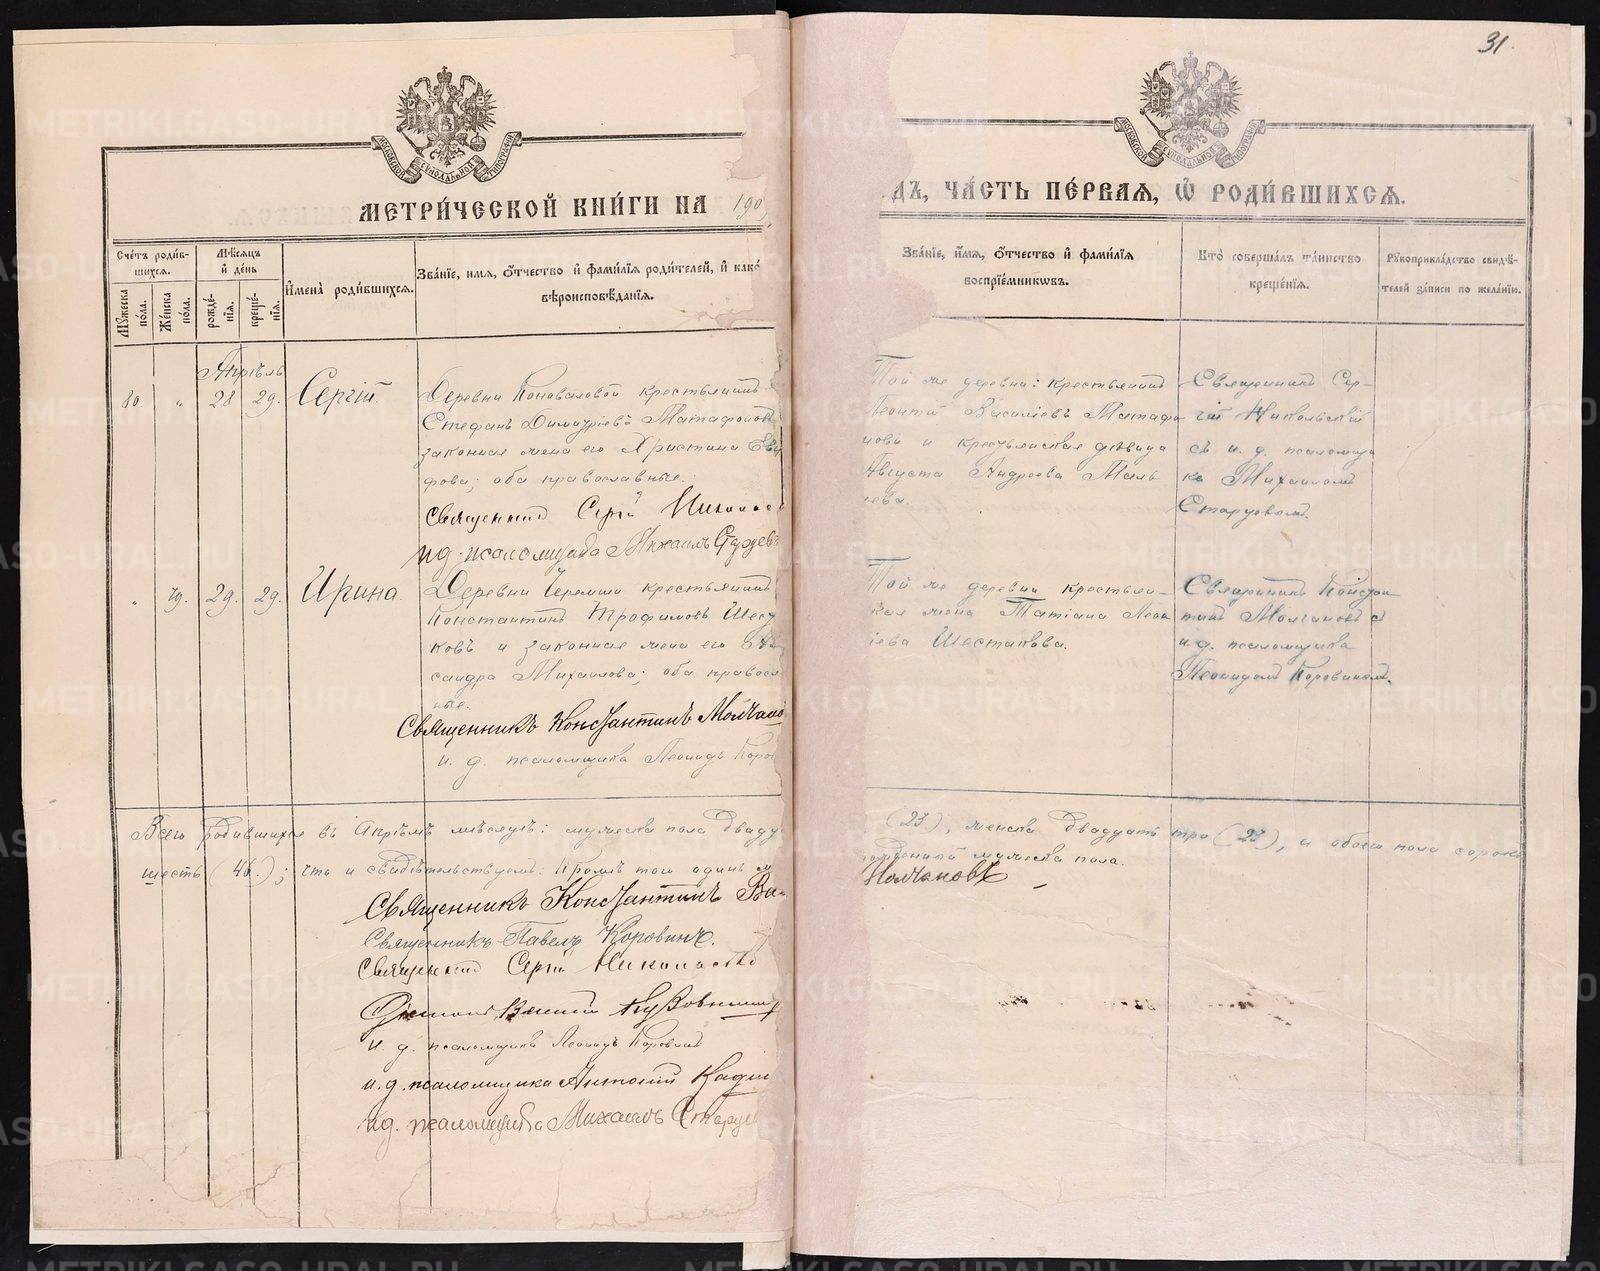 31.
МОСКОВСКОЙ СѴНОДАЛЬНОЙ ТИПОГРАФІИ
МОСКОВСКОЙ СѴНОДАЛЬНОЙ ТИПОГРАФІИ
МЕТРИ́ЧЕСКОЙ КНИ́ГИ НА 190
ДЪ, ЧА́СТЬ ПЕ́РВАЯ, Ѡ҆ РОДИ́ВШИХСѦ.
Сче́тъ роди́в-
шихсѧ.
Мужеска по́ла.
Же́нска по́ла.
Мѣ́сѧцъ
и҆ де́нь
рожде́-
нїѧ.
креще́-
нїѧ.
И҆мена̀ роди́вшихсѧ.
Зва́нїе, имѧ, ѻ҆́тчество и҆ фами́лїѧ роди́телей, и҆ како́
вѣроисповѣ́данїѧ.
Зва́нїе, и҆́мѧ, ѻ҆́тчество и҆ фами́лїѧ
воспрїе́мникѡвъ.
Кто̀ соверша́лъ та́инство
креще́нїѧ.
Рꙋкоприкла́дство свидѣ́-
телей за́писи по жела́нїю.
Апрѣль
80. " 28 29. Сергій.
Деревни Коноваловой крестьянинъ
Стефанъ Димитріевъ Матафонов
законная жена его Христина Ев
фова; оба православные.
Священникъ Сергій Никольс
и.д. псаломщика Михаилъ Старцевъ
Той же деревни: крестьянинъ
Леонтій Василіевъ Матафо
новъ и крестьянская дѣвица
Августа Андреева Маль
ева.
Священникъ Сер-
гій Никольскій
съ и. д. псаломщи
ка Михаиломъ
Старцевымъ.
" 79. 29. 29. Ирина.
Деревни Черемши крестьянинъ
Константинъ Трофимовъ Шест
ковъ и законная жена его Ал
сандра Михаилова; оба правосл
ные.
Священникъ Константинъ Молчано
и. д. псаломщика Леонидъ Коро
Той же деревни крестьян-
ская жена Татіана Леон
іева Шестакова.
Священникъ Констан
тинъ Молчановъ с
и.д. псаломщика
Леонидомъ Коровинымъ.
Всего родившихся въ Апрѣлѣ мѣсяцѣ: мужеска пола двадц
(23), женска двадцать три (23), и обоего пола сорокъ
шесть (46.); что и свидѣтельствуемъ. Кромѣ того одинъ м
рожденный мужеска пола.
Священникъ Константинъ Ва
Молчановъ
Священникъ Павелъ Коровинъ.
Священникъ Сергій Никольскі
и. д. псаломщика Леонидъ Коровинъ
и.д. псаломщика Антоній Кади
и.д. псаломщика Михаилъ Старцев
METRIKI.GASO-URAL.RU